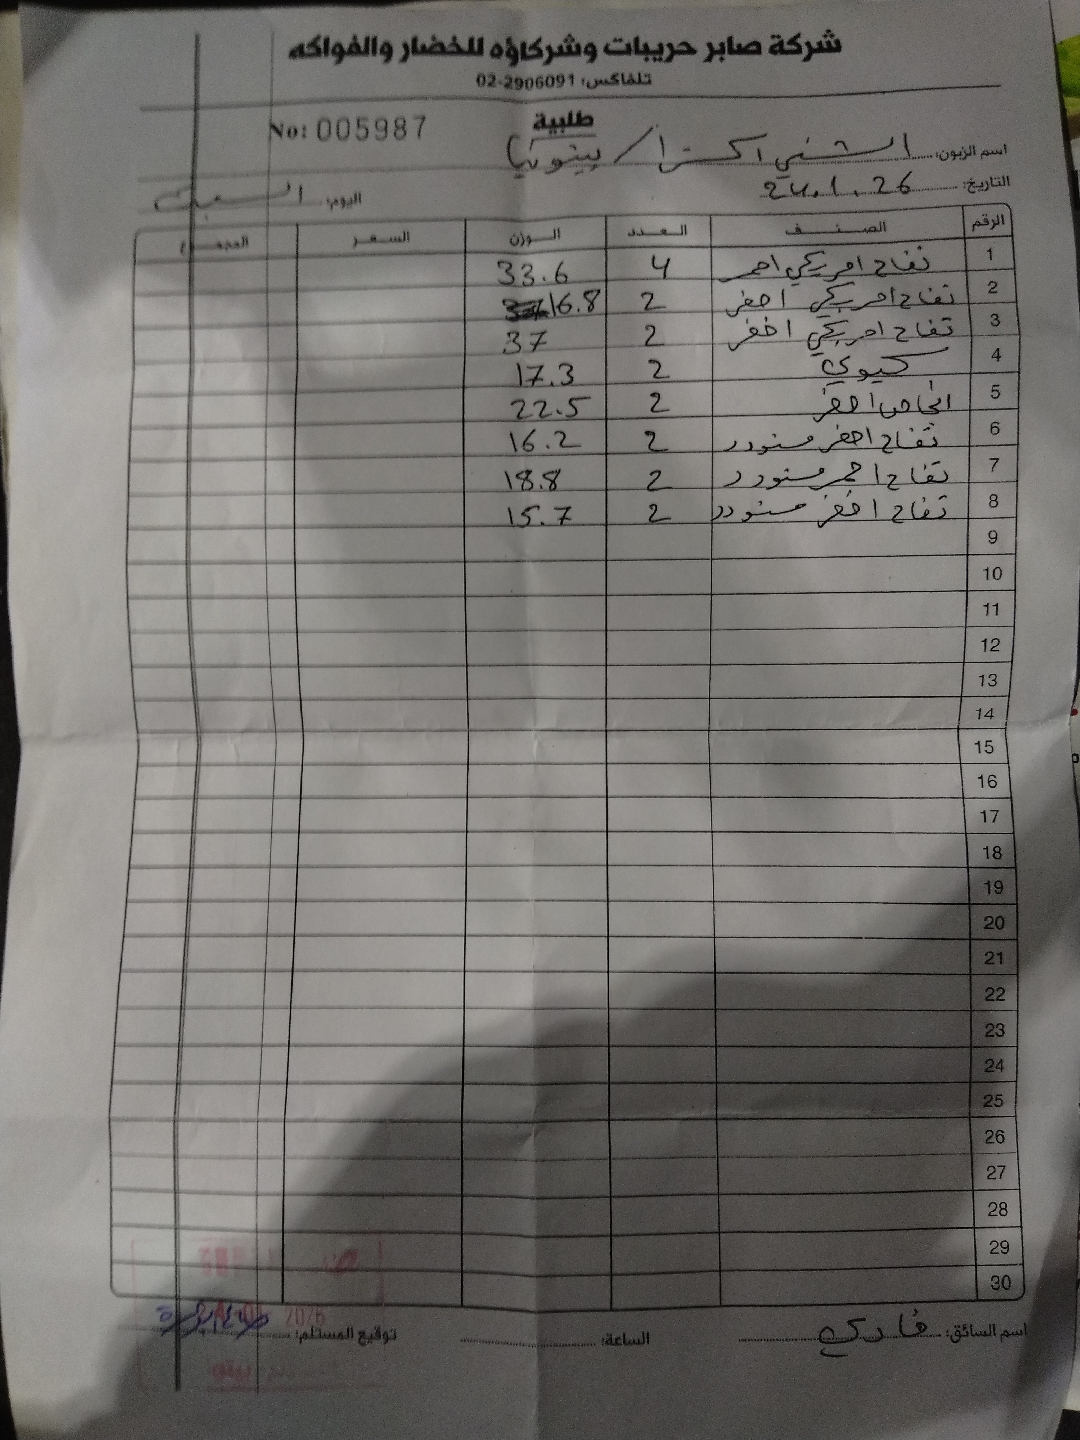 شركة صابر حريبات وشركاؤه للخضار والفواكه
تلفاكس: 02-2906091
طلبية
No: 005987
اسم الزبون: الشني اكسترا / بيتونيا
التاريخ: 24.1.26
اليوم: السبت
الرقم الصنف العدد الوزن السعر المجموع
1 تفاح امريكي احمر 4 33.6
2 تفاح امريكي اصفر 2 16.8
3 تفاح امريكي اخضر 2 37
4 كيوي 2 17.3
5 اجاص اصفر 2 22.5
6 تفاح اصفر مستورد 2 16.2
7 تفاح احمر مستورد 2 18.8
8 تفاح اخضر مستورد 2 15.7
9
10
11
12
13
14
15
16
17
18
19
20
21
22
23
24
25
26
27
28
29
30
اسم السائق: فادي
الساعة:
توقيع المستلم:
2026